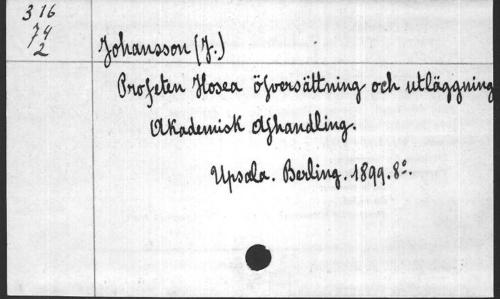 316
74
2
Johansson (J.)
Profeten Hosea öfversättning och utläggning
Akademisk Afhandling.
Upsala. Berling. 1899. 8º.